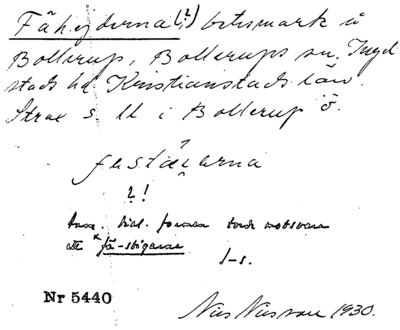 Fähejderna (?) betesmark å
Bollerup, Bollerups sn. Ingel
stads hd Kristianstads län.
Strax s. ll i Bollerup ö.
festáerna
?!
dial. formen torde motsvara
*fä-stigarna
Nr 5440
Nils Nilsson 1930.